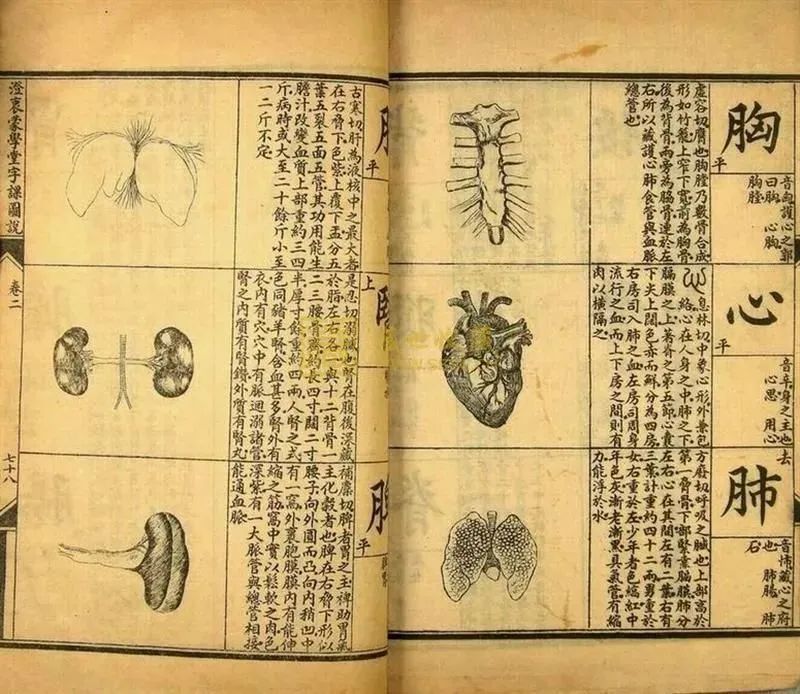 胸
平
音匈護心之郭
曰胸 心胸
胸膛
虛容切膺也胸膛乃數骨合成
形如竹籠上窄下寬前為胸骨
後為背骨兩旁為脇骨連於左
右所以藏護心肺食管與血脈
總管也
心
平
音辛身之主也
心思 用心
息林切中象心形外兼包
絡心在人身之中肺之下
膈膜之上者脊之第五節心囊
下尖上闊色赤而鮮分為四房
右房司入肺之血左房司周身
流行之血而上下房之間則有
肉以橫隔之
去
肺
音怖藏心之府
也 肺腸 肺
石
方廢切呼吸之臟也上部高於
第一脅骨下部緊靠膈膜肺分
左右心在其間左有二葉右有
三葉計重約四十二兩男重於
女右重於左少年者色縞紅中
年色灰漸老漸黑具氣管有縮
力能浮於水
平
古寒切肝為液核中之最大者
在右脅下色紫上覆下盂分五
葉五裂五面五管其功用能生
膽汁改變血質上部重約三四
斤病時或大至二十餘斤小至
一二斤不定
上
是忍切溺臟也腎在腹後深藏
於脂左右各一與十二背骨一
二三腰骨齊約長四寸闊二寸
半厚寸餘重約四兩人腎之式
色同豬羊腎含血甚多腎外有
衣內有穴穴中有脈迴溺諸管
腎之內質有腎鑽外質有腎丸
平
補縻切脾者胃之主裨助胃氣
主化穀者也脾在右脅下形似
腰子向外圓而凸向內稍凹中
有一窩外裹胞膜膜內有能伸
縮之筋窩中實以鬆軟之肉色
深紫有一大脈管與總管相接
能通血脈
澄衷蒙學堂字課圖說
卷二
七十八